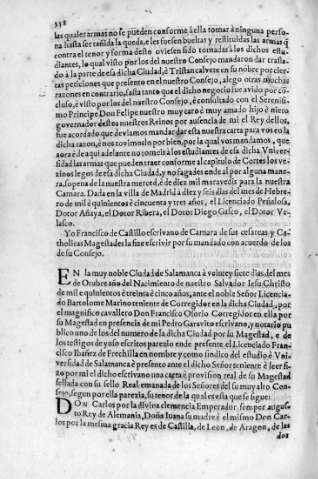 338
las quales armas no se pueden conforme à ella tomar à ninguna perso-
na hasta ser tañida la queda, e les fuesen bueltas y restituidas las armas q̃
contra el tenor y forma desto oviesen sido tomadas à los dichos estu-
diantes, lo qual visto por los del nuestro Consejo mandaron dar trasla-
do à la parte de esa dicha Ciudad, è Tristan calvete en su nobre por cier-
tas peticiones que presentò en el nuestro Consejo, alego otras muchas
razones en contrario, asta tanto que el dicho negocio fue avido por cō-
cluso, è visto por los del nuestro Consejo, è consultado con el Serenisi-
mo Principe Don Felipe nuestro muy caro è muy amado hijo è nieto
governador destos nuestros Reinos por ausencia de mi el Rey dellos,
fue acordado que deviamos mandar dar esta nuestra carta para vos en la
dicha razon, è nos tuvimoslo por bien, por la qual vos mandamos, que
aora è de aqui adelante no tomeis à los estudiantes de esa dicha Univer-
sidad las armas que pueden traer conforme al capitulo de Cortes los ve-
zinos legos de esa dicha Ciudad, y no fagades ende al por alguna mane-
ra, so pena de la nuestra merced, è de diez mil maravedis para la nuestra
Camara. Dada en la villa de Madrid à diez y seis dias del mes de Hebre-
ro de mil è quinientos è cincuenta y tres años, el Licenciado Peñalosa,
Dotor Añaya, el Dotor Ribera, el Dotor Diego Gasco, el Dotor Ve-
lasco.
Yo Francisco de Castillo escrivano de Camara de sus cesareas y Ca-
tholicas Magestades la fize escrivir por su mandado con acuerdo de los
de su Consejo.
EN la muy noble Ciudad de Salamanca à veinte y siete dias del mes
de Otubre año del Nacimiento de nuestro Salvador Jesu Christo
de mil e quinientos è treinta è cinco años, ante el noble Señor Licencia-
do Bartolome Marino teniente de Corregidor en la dicha Ciudad, por
el magnifico cavallero Don Francisco Osorio Corregidor en ella por
su Magestad en presencia de mi Pedro Garavito escrivano, y notario pu
blico uno de los del numero de la dicha Ciudad por su Magestad, è de
los testigos de yuso escritos parecio ende presente el Licenciado Fran-
cisco Ibañez de Frechilla en nombre y como sindico del estudio è Uni-
versidad de Salamanca è presentò ante el dicho Señor teniente è leer fi-
zo por mi el dicho escrivano una carta è provision real de su Magestad
sellada con su sello Real emanada de los Señores del su muy alto Con-
sejo segun por ella parecia, su tenor de la qual es esta que se sigue:
DON Carlos por la divina clemencia Emperador semper augus-
to Rey de Alemania, Doña Juana su madre è el mismo Don Car-
los por la mesma gracia Reyes de Castilla, de Leon, de Aragon, de las
dos